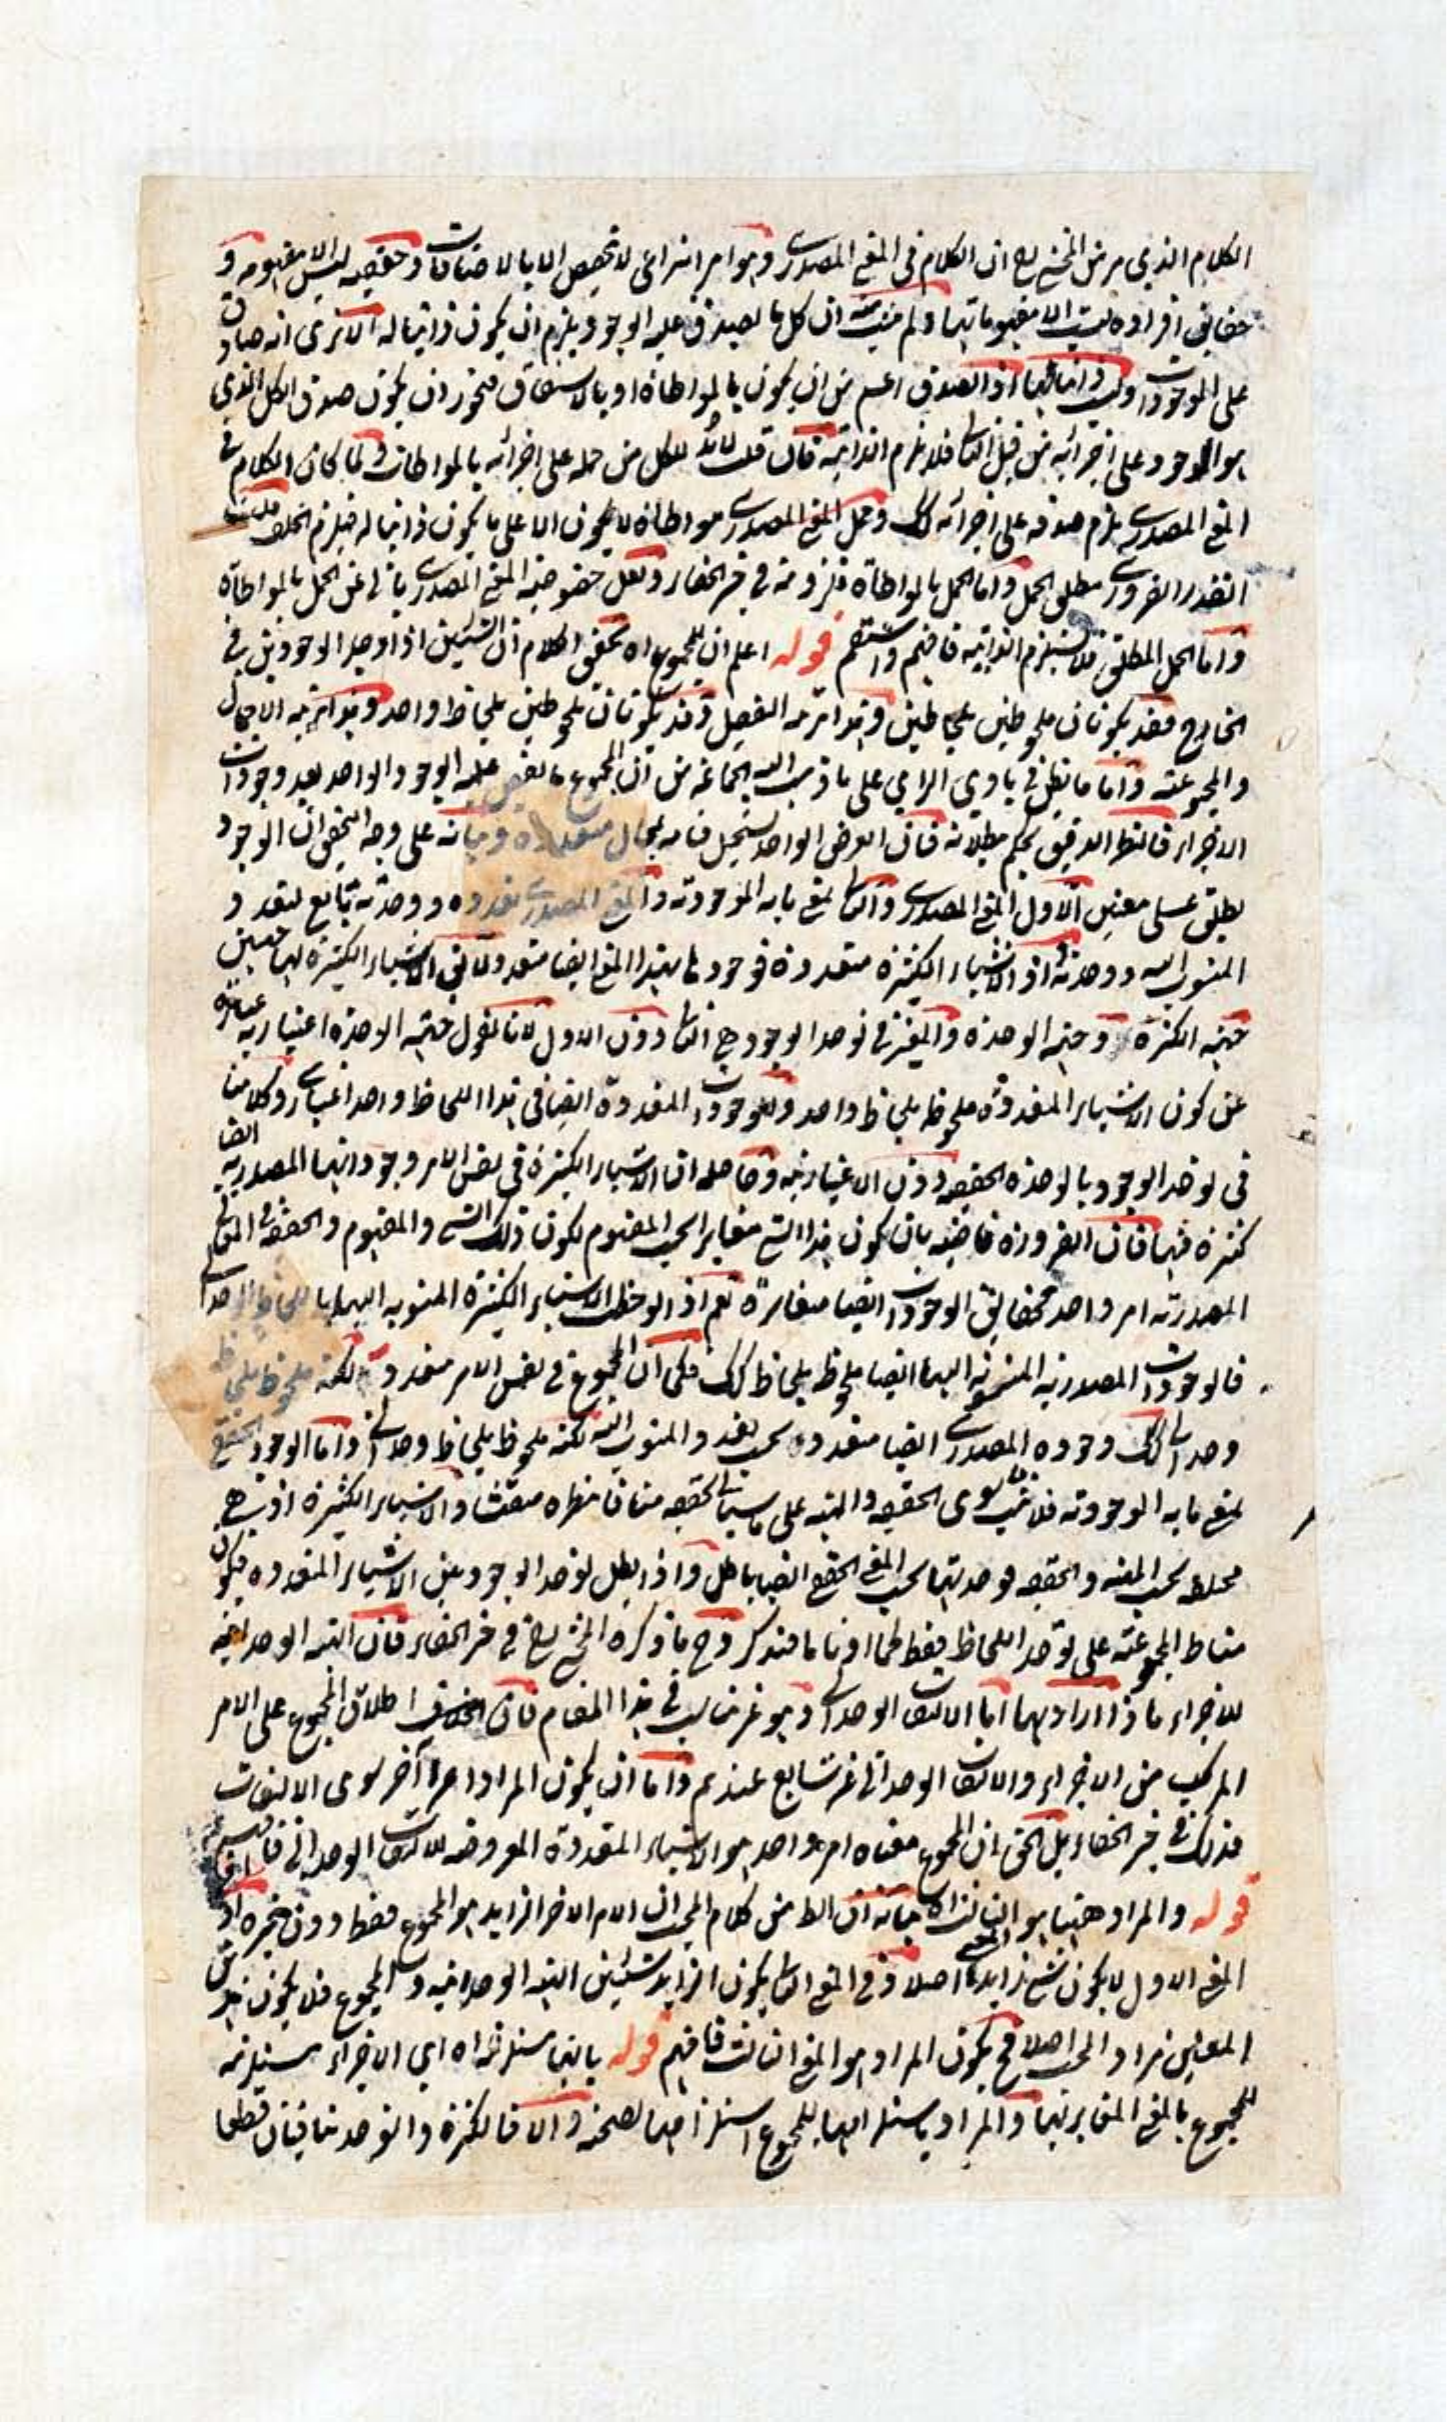 الكلام الذي مر من المحشي رح ان الكلام في المعنى المصدري وهو امر انتزاعي لا تحصص الا بالاضافات وحقيقته ليس الا مفهومه و
حقائق افراده ليست الا مفهوماتها ولم يثبت ان كل ما يصدق عليه الوجود يلزم ان يكون ذاتيا له الا ترى انه صادق
على الموجودات وليس ذاتيا لها اذ الصدق اعم من ان يكون بالمواطاة او بالاشتقاق فيجوز ان يكون صدق الكل الذي
هو الوجود على اجزائه من قبل الثاني فلا يلزم الذاتية فان قلت لابد للكل من حمله على اجزائه بالمواطات ولما كان الكلام في
المعنى المصدري يلزم صدقه على اجزائه كك وحمل المعنى المصدري مواطاة لا يكون الا على ما يكون ذاتيا له فيلزم الخلف قلت
القدر الضروري مطلق الحمل واما الحمل بالمواطاة فلزومه في حيز الخفاء ولعل خصوصية المعنى المصدري يابى عن الحمل بالمواطاة
واما الحمل المطلق فلا يستلزم الذاتية فافهم واستقم قوله اعلم ان للمجموع اه تحقيق الكلام ان الشيئين اذا وجد الوجودين في
الخارج فقد يكونان ملحوظين بلحاظين وهذا مرتبة التفصيل وقد يكونان ملحوظين بلحاظ واحد وهذا مرتبة الاجمال
والمجموعية واما ما يظن في بادي الراي على ما ذهب اليه جماعة من ان المجموع ما يفيض عليه الوجود الواحد بعد وجودات
الاجزاء فالنظر الدقيق يحكم ببطلانه فان العرض الواحد يستحيل قيامه بمحال متعددة وبيانه على وجه التحقيق ان الوجود
يطلق على معنيين الاول المعنى المصدري والثاني بمعنى ما به الموجودية والمعنى المصدري تعدده ووحدته تابع لتعدد
المنسوب اليه ووحدته اذ الاشياء الكثيرة متعددة فوجودها بهذا المعنى ايضا متعدد ولا يقال الاشياء الكثيرة لها حيثيتين
حيثية الكثرة وحيثية الوحدة والمعتبر في توحد الوجود هي الثاني دون الاول لانا نقول حيثية الوحدة اعتبارية عبارة
عن كون الاشياء المتعددة ملحوظة بلحاظ واحد والوجودات المتعددة ايضا في هذا اللحاظ واحد اعتباري وكلامنا
في توحد الوجود بالوحدة الحقيقية دون الاعتبارية وحاصله ان الاشياء الكثيرة في نفس الامر وجوداتها المصدرية ايضا
كثيرة فيها فان الضرورة قاضية بان كون هذا الشيء مغاير بحسب المفهوم لكون ذلك الشيء والمفهوم والحقيقة في المعاني
المصدرية امر واحد فحقائق الوجودات ايضا متغايرة نعم اذا لوحظ الاشياء الكثيرة المنسوبة اليها بلحاظ وحداني
فالوجودات المصدرية المنسوبة اليها ايضا ملحوظ بلحاظ كك فكما ان المجموع في نفس الامر متعدد لكنه ملحوظ بلحاظ
وحداني كك وجوده المصدري ايضا متعدد بحسب تعدد المنسوب اليه لكنه ملحوظ بلحاظ وحداني واما الوجود الحقيقي
بمعنى ما به الموجودية فلا ريب سوى الحقيقة والمهية على ما سياتي تحقيقه منافا نتظره مفتشا والاشياء الكثيرة اذ هي
مختلفة بحسب المهية والحقيقة فوحدتها بحسب المعنى الحقيقي ايضا باطل واذا بطل توحد الوجود عن الاشياء المتعددة فيكون
مناط المجموعية على توحد اللحاظ فقط كما اومانا فتذكر وح ما ذكره المحشي رح في حيز الخفاء فان الهيئة الوحدانية
للاجزاء ماذا اراد بها اما الالتفات الوحداني وهو غير مناسب في هذا المقام فان اطلاق المجموع على الامر
المركب من الاجزاء والالتفات الوحداني غير شايع عندهم واما ان يكون المراد امرا آخر سوى الالتفات
فذلك في حيز الخفاء بل الحق ان المجموع معناه امر واحد هو الاشياء المتعددة المعروضة للالتفات الوحداني فافهم
قوله والمراد ههنا هو الثالث اه بيانه ان الظ من كلام المحشي ان الامر الاخر الزايد هو المجموع فقط دون غيره اذ في
المعنى الاول لا يكون شيء زايد اصلا وفي المعنى الثاني يكون الزايد شيئين الهيئة الوحدانية والمجموع فلا يكون هذين
المعنيين مراد المحشي اصلا فح يكون المراد هو المعنى الثالث فافهم قوله بانها مستلزمة اه اي الاجزاء مستلزمة
للمجموع بالمعنى المغاير لها والمراد باستلزامها للمجموع استلزامها لصحته والا فالكثرة والتوحد متنافيان قطعا